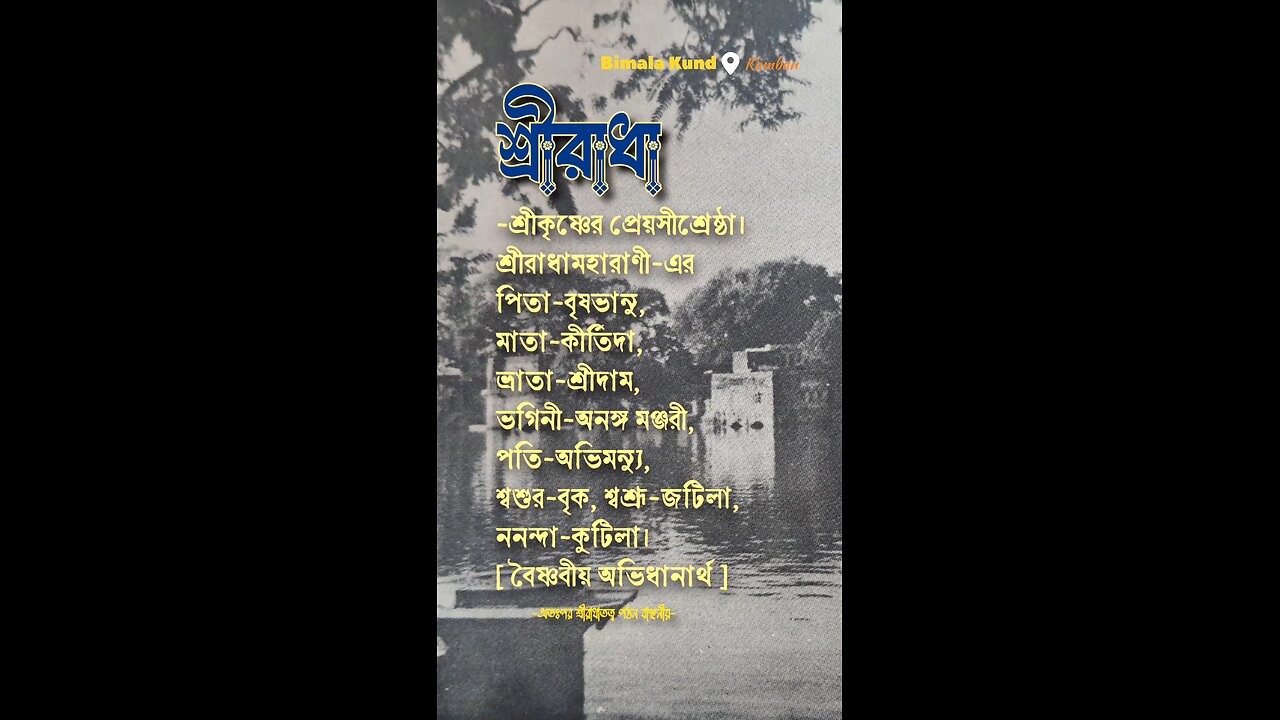 Bimala Kund Kamban
শ্রীরাধা
-শ্রীকৃষ্ণের প্রেয়সীশ্রেষ্ঠা।
শ্রীরাধামহারাণী-এর
পিতা-বৃষভানু,
মাতা-কীর্তিদা,
ভ্রাতা-শ্রীদাম,
ভগিনী-অনঙ্গ মঞ্জরী,
পতি-অভিমন্যু,
শ্বশুর-বৃক, শ্বশ্রূ-জটিলা,
ননন্দা-কুটিলা।
[ বৈষ্ণবীয় অভিধানার্থ ]
-অতঃপর শ্রীরাধাতত্ত্ব পঠন বাঞ্ছনীয়-